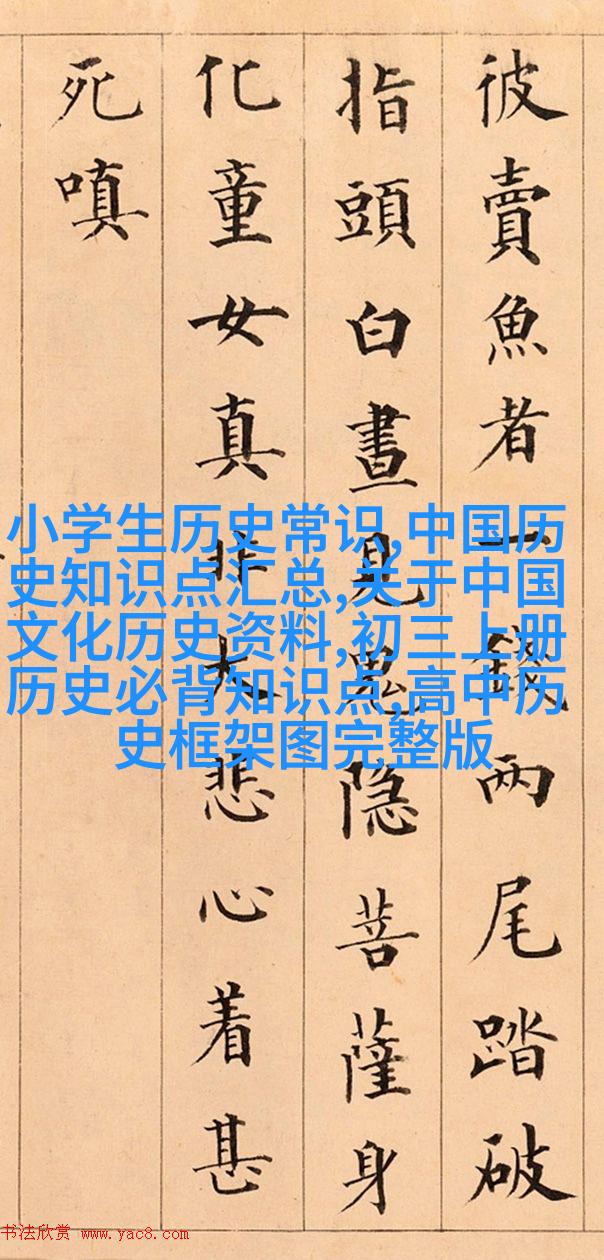 彼賣魚者一錢兩尾踏破
指頭白晝見鬼隐菩薩身
化童女真非大悲心着甚
死嗔
小学生历史常识,中国历
史知识点汇总,关于中国
文化历史资料,初三上册
历史必背知识点,高中历
史框架图完整版
书法欣赏 www.yac8.com